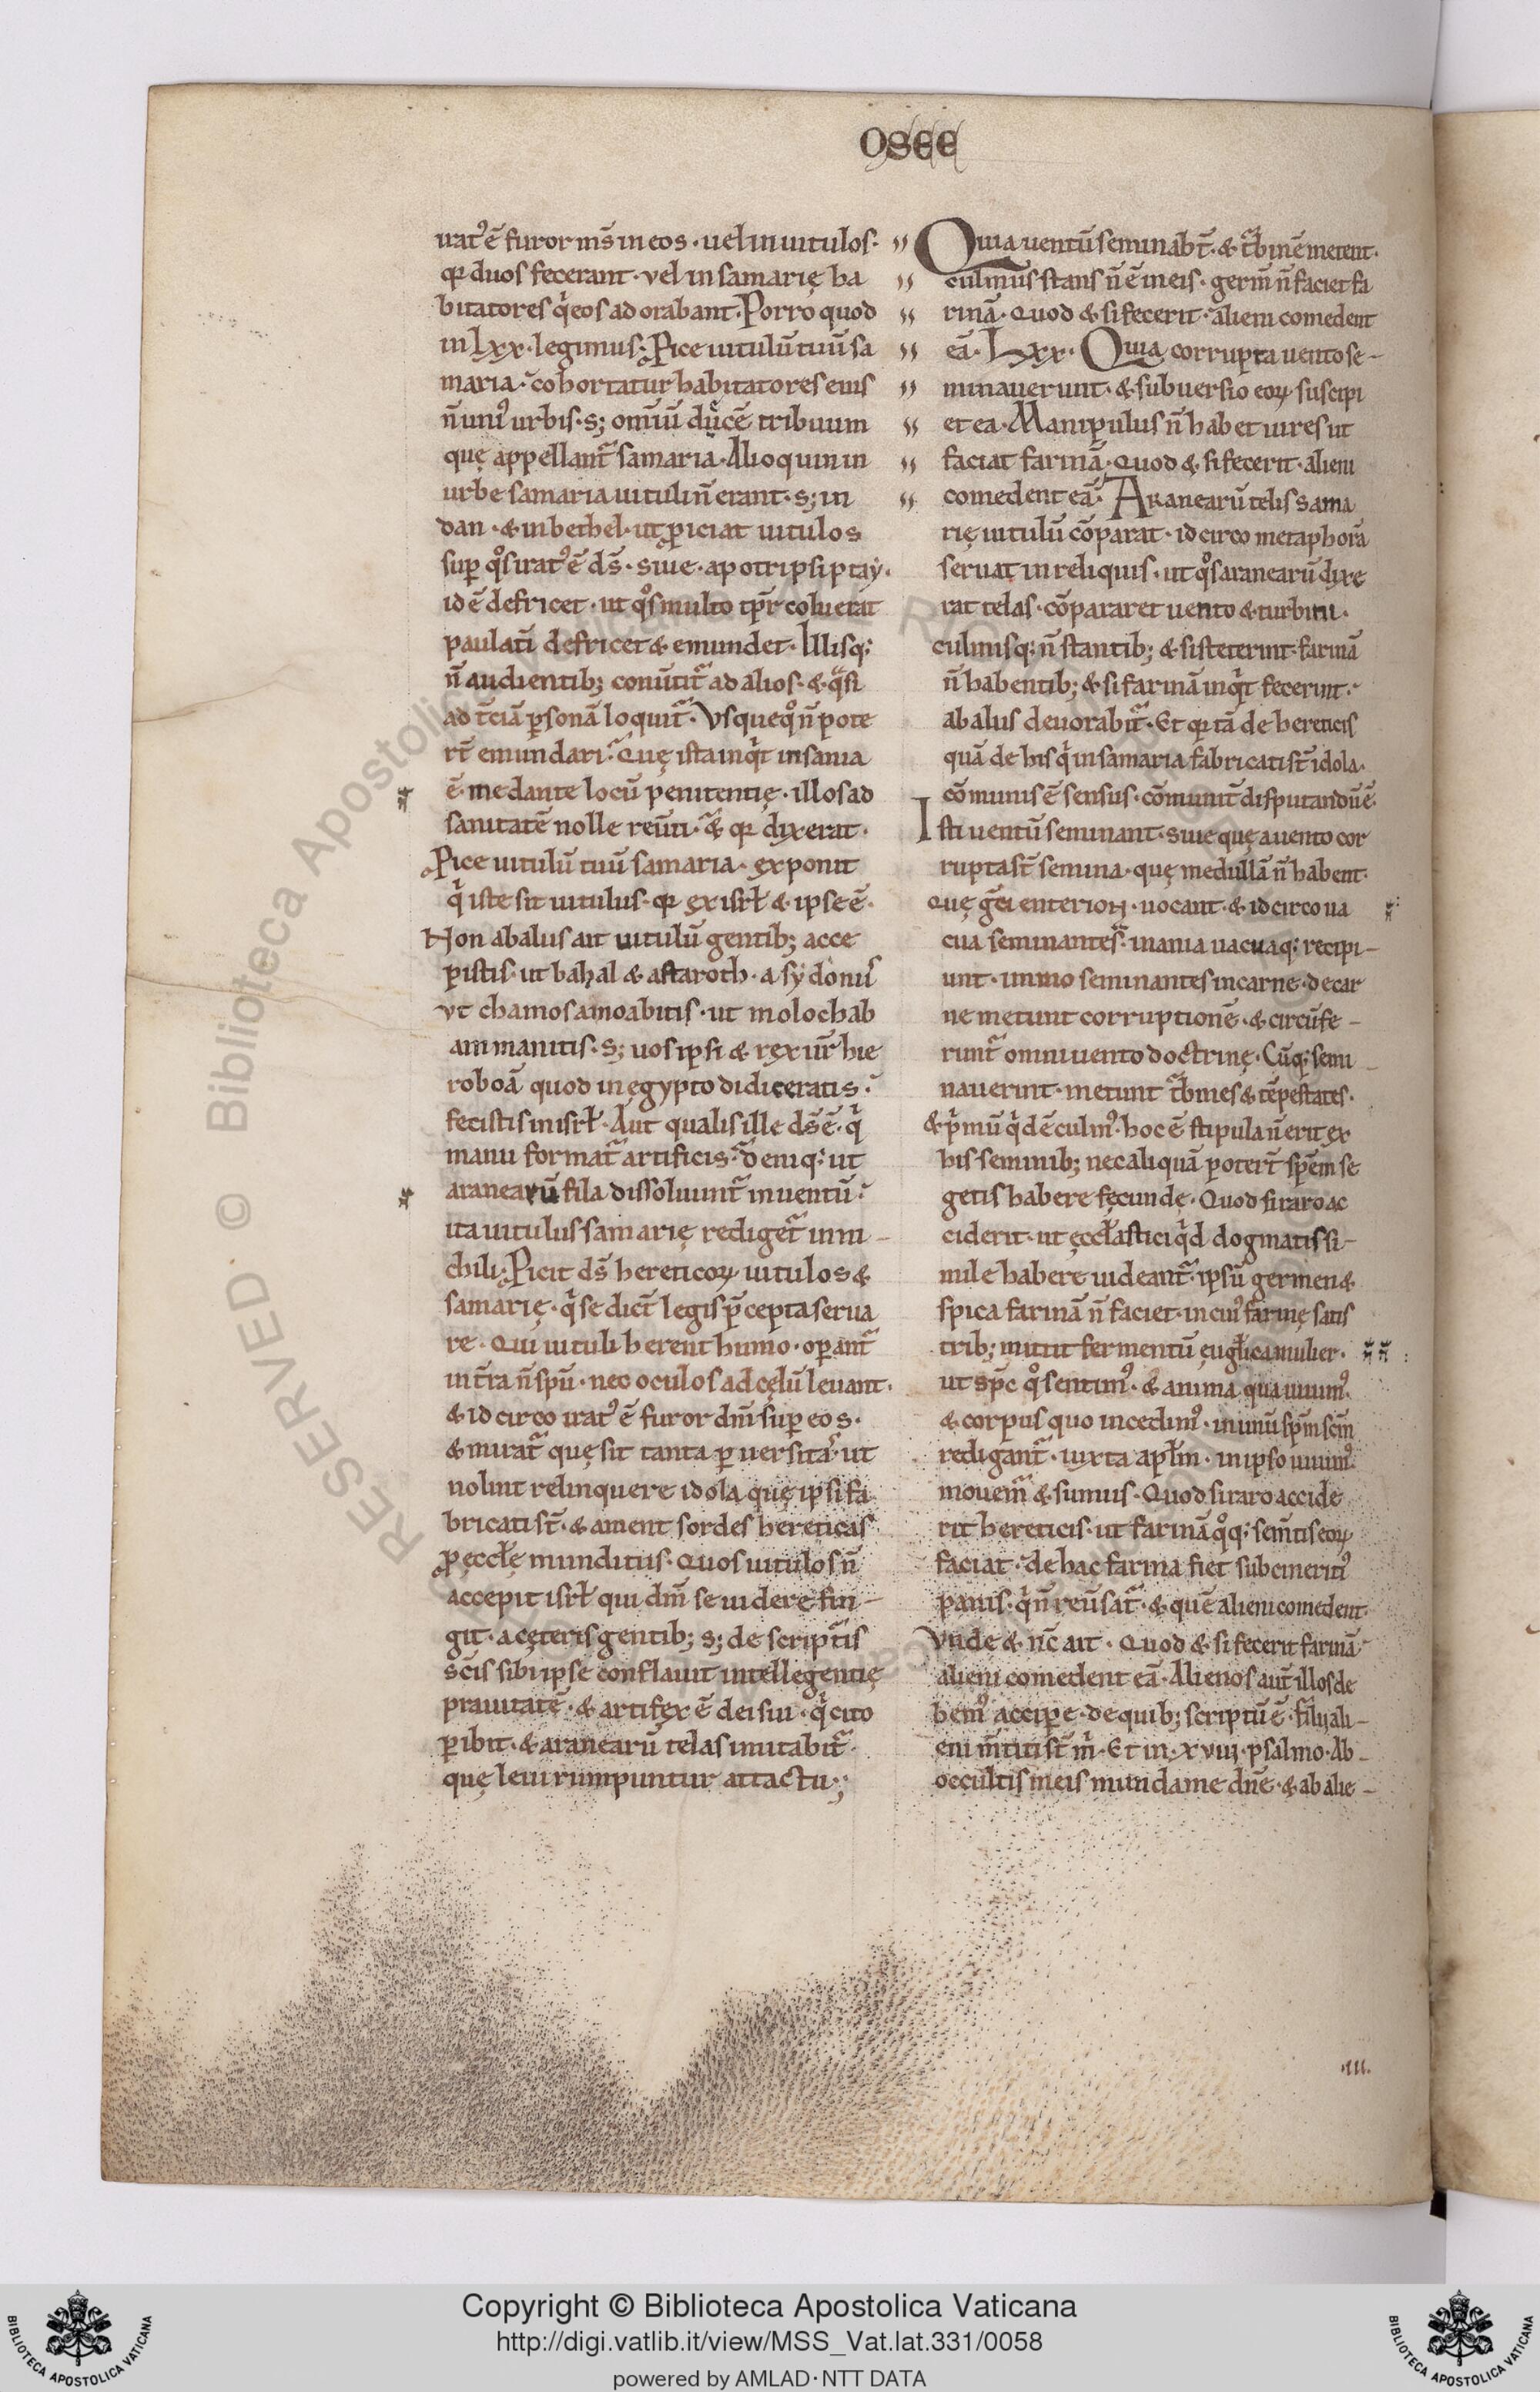 OSEE
uat᷒ ē furor ms̄ in eos · uel in uitulos·
qꝛ duos fecerant · vel in samarię ha
bitatores q̍ eos adorabant · Porro quod
in lxx · legimus · Proice uitulū tuū sa
maria · cohortatur habitatores eius
n̄ uni᷒ urbis · s; omīū duͨcē tribuum
quę appellant᷑ samaria · Alioquin in
urbe samaria uituli n̄ erant · s; in
dan · & in bethel · ut ꝓiciat uitulos
suꝑ qͦs irat᷒ ē ds̄ · siue · apotripsiptay·
id ē defricet · ut qͦs multo tp̄r coluerat
paulatī defricet & emundet · Illisq;
n̄ audientib; conūtit᷑ ad alios · & qͣsi
ad t̄ciā ꝑsonā loquit᷑ · Vsqueqͦ n̄ pote
rt̄ emundari · Quę ista inqͥt insania
ē · me dante locū penitentię · illos ad
sanitatē nolle reūti · & qꝛ dixerat ·
Proice uitulū tuū samaria · exponit
q̍ iste sit uitulus · qꝛ ex isrł & ipse ē ·
Non ab aliis ait uitulū gentib; acce
pistis · ut bahal & astaroth · a sydoniis
vt chamos a moabitis · ut moloch ab
ammanitis · s; uos ipsi & rex ur̄ hie
roboā quod in egypto didiceratis ·
fecistis in isrł · Aut qualis ille ds̄ ē · q̍
manu format᷑ artificis · deniq; ut
aranearū fila dissoluunt᷑ in uentū ·
ita uitulus samarię rediget᷑ in ni-
chili · Proicit ds̄ hereticoꝝ uitulos &
samarię · q̍ se dict̄ legis p̄cepta serua
re · Qui uituli herent humo · oꝑant᷑
in t̄ra n̄ spū · nec oculos ad cęlū leuant ·
& idcirco irat᷒ ē furor dn̄i suꝑ eos ·
& mirat᷑ quę sit tanta ꝑuersitas · ut
nolint relinquere idola quę ipsi fa
bricati st̄ · & ament sordes hereticas
ꝓ ęccłę munditiis · Quos uitulos n̄
accepit isrł qui dm̄ se uidere fin-
git · a cęteris gentib; s; de scripturis
scīs sibi ipse conflauit intellegentię
prauitatē · & artifex ē dei sui · q̍ cito
ꝑibit · & aranearū telas imitabit᷑ ·
quę leui rumpuntur attactu ;
Quia uentū seminabt̄ · & t᷑binē metent ·
culmus stans n̄ ē in eis · germ̄ n̄ faciet fa
rinā · Quod & si fecerit · alieni comedent
eā · Lxx · Quia corrupta uento se-
minauerunt · & subuersio eoꝝ suscipi
et ea · Manipulus n̄ habet uires ut
faciat farinā · Quod & si fecerit · alieni
comedent eā · Aranearū telis sama
rię uitulū cōparat · idcirco metaphorā
seruat in reliquis · ut qͦs aranearū dixe
rat telas · cōpararet uento & turbini ·
culmisq; n̄ stantib; & si steterint · farinā
n̄ habentib; & si farinā inqͥt fecerint ·
ab aliis deuorabit᷑ · Et qꝛ tā de hereticis
quā de his q̍ in samaria fabricati st̄ idola ·
cōmunis ē sensus · cōmunit̄ disputandū ē ·
Isti uentū seminant · siue quę a uento cor
rupta st̄ semina · quę medullā n̄ habent ·
Quę ḡci enterioн · uocant · & idcirco ua
cua seminantes · inania uacuaq; recipi-
unt · immo seminantes in carne · de car
ne metunt corruptionē · & circūfe-
runt᷑ omni uento doctrinę · Cūq; semi-
nauerint · metunt t᷑bines & tēpestates ·
& pͥmū qͥdē culm᷒ · hoc ē stipula n̄ erit ex
his seminib; nec aliquā potert̄ spēm se
getis habere fęcundę · Quod si raro ac
ciderit · ut ęccłastici qͥd dogmatis si-
mile habere uideant᷑ · ipsū germen &
spica farinā n̄ faciet · in cui᷒ farinę satis
trib; mittit fermentū ęuglica mulier ·
ut sp̄c qͦ sentim᷒ · & anima qua uiuim᷒ ·
& corpus quo incedim᷒ · in unū spm̄ scm̄
redigant᷑ · iuxta apłm · in ipso uiuim᷒
mouem᷑ & sumus · Quod si raro accide
rit hereticis · ut farinā qͦq; sem̄tis eoꝝ
faciat · de hac farina fiet subcineriti᷒
panis · q̍ n̄ reūsat᷑ · & quē alieni comedent ·
Vnde & nc̄ ait · Quod & si fecerit farinā ·
alieni comedent eā · Alienos aut̄ illos de
bem᷒ acciꝑe · de quib; scriptū ē · filii ali-
eni m̄titi st̄ m̍ · Et in · xviii · psalmo · Ab
occultis meis munda me dn̄e · & ab alie-
·III·
RESERVED © Biblioteca Apostolica Vaticana
Copyright © Biblioteca Apostolica Vaticana
http://digi.vatlib.it/view/MSS_Vat.lat.331/0058
powered by AMLAD·NTT DATA
BIBLIOTECA APOSTOLICA VATICANA
BIBLIOTECA APOSTOLICA VATICANA